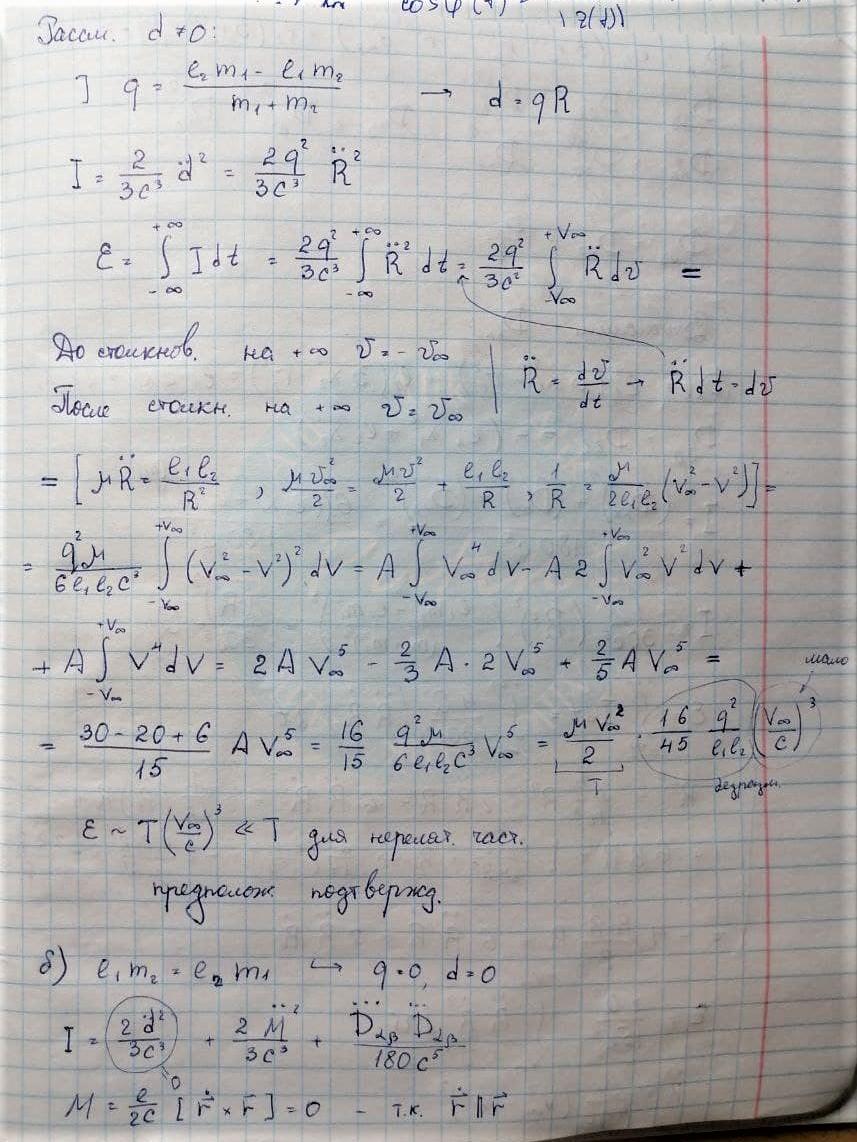 cos φ(t)
Рассм. d ≠ 0:
] q = (e₂m₁ - e₁m₂)/(m₁ + m₂) → d = qR
I = 2/(3c³) d̈² = 2q²/(3c³) R̈²
ℰ = ∫_{-∞}^{+∞} I dt = 2q²/(3c³) ∫_{-∞}^{+∞} R̈² dt = 2q²/(3c²) ∫_{-V∞}^{+V∞} R̈ dv =
До столкнов. на +∞ v = - v∞ | R̈ = dv/dt → R̈ dt = dv
После столкн. на +∞ v = v∞
= [ μR̈ = e₁e₂/R² , μv∞²/2 = μv²/2 + e₁e₂/R , 1/R = μ/(2e₁e₂) (V∞² - V²) ] =
= q²μ/(6e₁e₂c³) ∫_{-V∞}^{+V∞} (V∞² - V²)² dV = A ∫_{-V∞}^{+V∞} V∞⁴ dV - A 2 ∫_{-V∞}^{+V∞} V∞² V² dV +
+ A ∫_{-V∞}^{+V∞} V⁴ dV = 2A V∞⁵ - 2/3 A · 2V∞⁵ + 2/5 A V∞⁵ = мало
= (30 - 20 + 6)/15 A V∞⁵ = 16/15 q²μ/(6e₁e₂c³) V∞⁵ = μV∞²/2 · 16/45 q²/(e₁e₂) (V∞/c)³
T безразм.
ℰ ~ T (V∞/c)³ ≪ T для нерелят. част.
предполож. подтвержд.
б) e₁m₂ = e₂m₁ ↪ q = 0, d = 0
I = 2d̈²/(3c³) + 2M̈²/(3c³) + D⃛_{αβ} D⃛_{αβ}/(180c⁵)
=0
M = e/(2c) [ṙ⃗ × r⃗] = 0 - т.к. ṙ⃗ ∥ r⃗